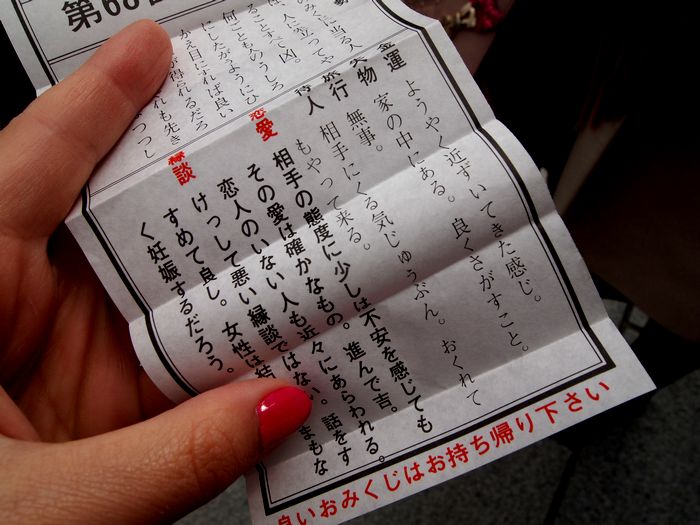 第60
に当る人
人に立つてや
ることすべて凶。
何ごとも人のうしろ
にしたがうようにひ
かえ目にすれば良い
が得られるだろ
れも先き
つつし
金運 ようやく近ずいてきた感じ。
失物 家の中にある。良くさがすこと。
旅行 無事。
待人 相手にくる気じゅうぶん。おくれて
もやって来る。
恋愛 相手の態度に少しは不安を感じても
その愛は確かなもの。進んで吉。
恋人のいない人も近々にあらわれる。
縁談 けっして悪い縁談ではない。話をす
すめて良し。女性は結 まもな
く妊娠するだろう。
良いおみくじはお持ち帰り下さい